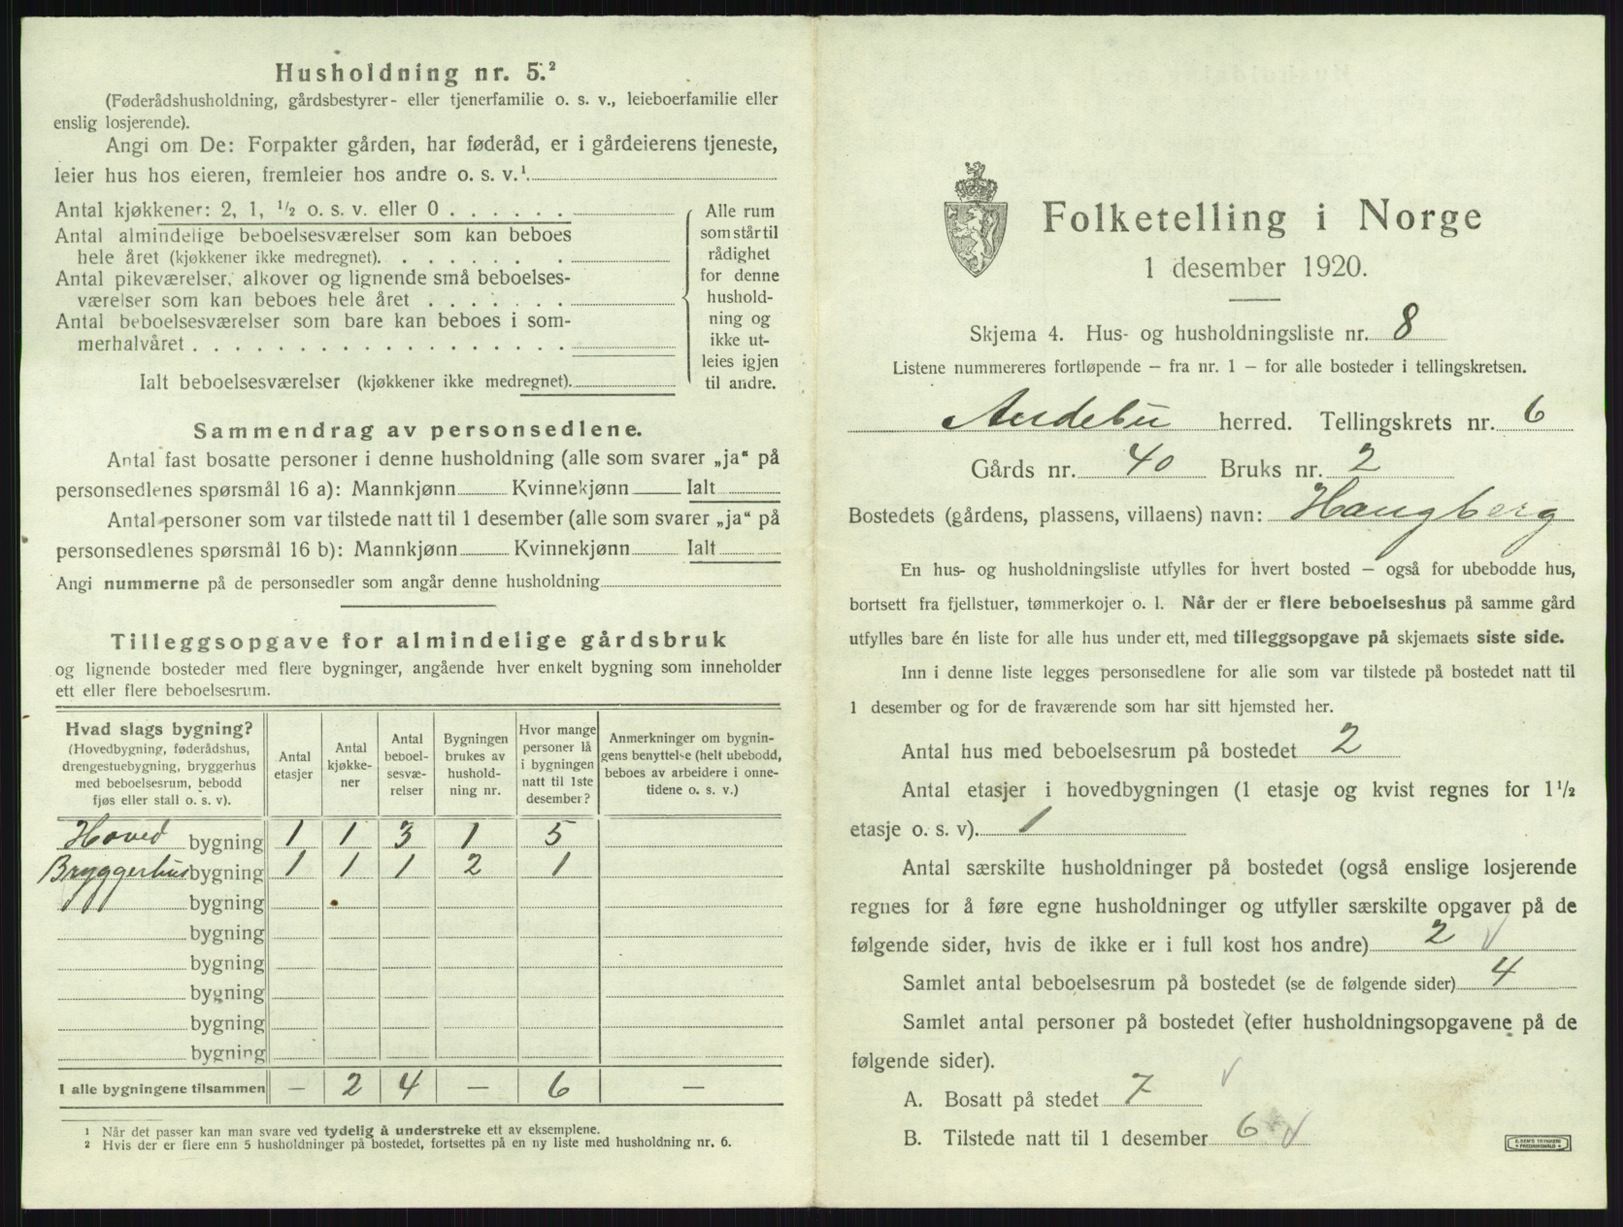 Husholdning nr. 5.²
(Føderådshusholdning, gårdsbestyrer- eller tjenerfamilie o. s. v., leieboerfamilie eller
enslig losjerende).
Angi om De: Forpakter gården, har føderåd, er i gårdeierens tjeneste,
leier hus hos eieren, fremleier hos andre o. s. v.¹
Antal kjøkkener: 2, 1, ½ o. s. v. eller 0 . . . . . .
Antal almindelige beboelsesværelser som kan beboes
hele året (kjøkkener ikke medregnet). . . . . . . .
Antal pikeværelser, alkover og lignende små beboelses-
værelser som kan beboes hele året . . . . . . .
Antal beboelsesværelser som bare kan beboes i som-
merhalvåret . . . . . . . . . . . . . . . . . .
Ialt beboelsesværelser (kjøkkener ikke medregnet).
Alle rum
som står til
rådighet
for denne
hushold-
ning og
ikke ut-
leies igjen
til andre.
Sammendrag av personsedlene.
Antal fast bosatte personer i denne husholdning (alle som svarer „ja“ på
personsedlenes spørsmål 16 a): Mannkjønn Kvinnekjønn Ialt
Antal personer som var tilstede natt til 1 desember (alle som svarer „ja“ på
personsedlenes spørsmål 16 b): Mannkjønn Kvinnekjønn Ialt
Angi nummerne på de personsedler som angår denne husholdning
Tilleggsopgave for almindelige gårdsbruk
og lignende bosteder med flere bygninger, angående hver enkelt bygning som inneholder
ett eller flere beboelsesrum.
Hvad slags bygning?
(Hovedbygning, føderådshus,
drengestuebygning, bryggerhus
med beboelsesrum, bebodd
fjøs eller stall o. s. v).
Antal
etasjer
Antal
kjøkke-
ner
Antal
beboel-
sesvæ-
relser
Bygningen
brukes av
hushold-
ning nr.
Hvor mange
personer lå
i bygningen
natt til 1ste
desember?
Anmerkninger om bygnin-
gens benyttelse (helt ubebodd,
beboes av arbeidere i onne-
tidene o. s. v.)
Hoved bygning 1 1 3 1 5
Bryggerhus bygning 1 1 1 2 1
bygning
bygning
bygning
bygning
bygning
bygning
I alle bygningene tilsammen — 2 4 — 6 —
¹ Når det passer kan man svare ved tydelig å understreke ett av eksemplene.
² Hvis der er flere enn 5 husholdninger på bostedet, fortsettes på en ny liste med husholdning nr. 6.
Folketelling i Norge
1 desember 1920.
Skjema 4. Hus- og husholdningsliste nr. 8
Listene nummereres fortløpende – fra nr. 1 – for alle bosteder i tellingskretsen.
Andebu herred. Tellingskrets nr. 6
Gårds nr. 40 Bruks nr. 2
Bostedets (gårdens, plassens, villaens) navn: Haugberg
En hus- og husholdningsliste utfylles for hvert bosted – også for ubebodde hus,
bortsett fra fjellstuer, tømmerkojer o. l. Når der er flere beboelseshus på samme gård
utfylles bare én liste for alle hus under ett, med tilleggsopgave på skjemaets siste side.
Inn i denne liste legges personsedlene for alle som var tilstede på bostedet natt til
1 desember og for de fraværende som har sitt hjemsted her.
Antal hus med beboelsesrum på bostedet 2
Antal etasjer i hovedbygningen (1 etasje og kvist regnes for 1½
etasje o. s. v). 1
Antal særskilte husholdninger på bostedet (også enslige losjerende
regnes for å føre egne husholdninger og utfyller særskilte opgaver på de
følgende sider, hvis de ikke er i full kost hos andre) 2 √
Samlet antal beboelsesrum på bostedet (se de følgende sider) 4
Samlet antal personer på bostedet (efter husholdningsopgavene på de
følgende sider).
A. Bosatt på stedet 7 √
B. Tilstede natt til 1 desember 6 √